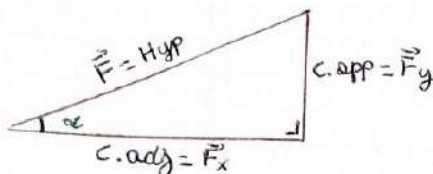 F⃗ = Hyp
C.opp = F⃗y
α
C.adj = F⃗x